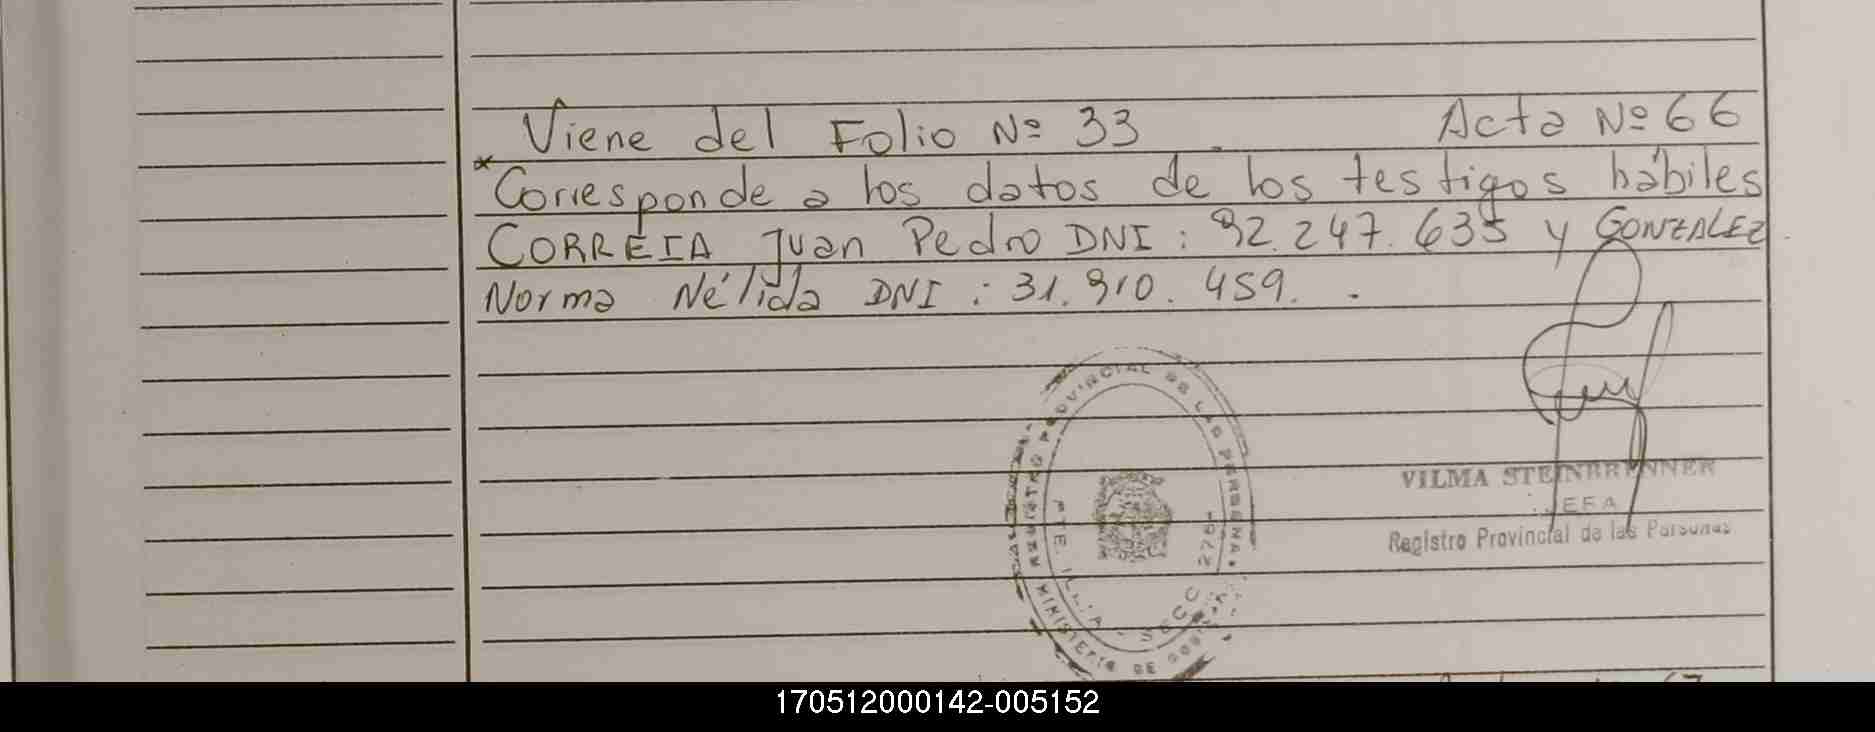 Viene del Folio Nº 33 . Acta Nº 66
* Corresponde a los datos de los testigos hábiles
CORREIA Juan Pedro DNI : 92.247.635 y GONZALEZ
Norma Nélida DNI : 31.910.459. .
REGISTRO PROVINCIAL DE LAS PERSONAS
MINISTERIO DE GOBIERNO
PTE. ILLIA - SECC 2707
VILMA STEINBRENNER
JEFA
Registro Provincial de las Personas
170512000142-005152